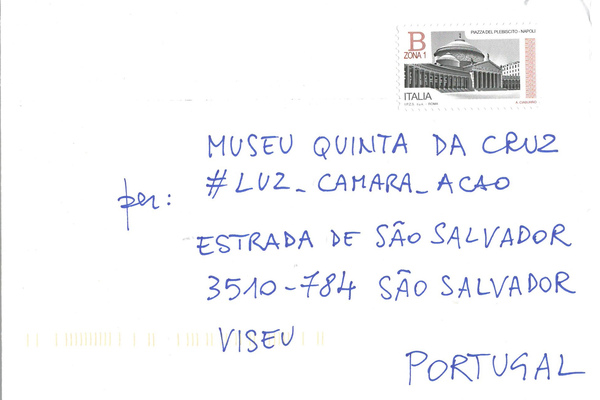 PIAZZA DEL PLEBISCITO - NAPOLI
B
ZONA 1
ITALIA
MUSEU QUINTA DA CRUZ
per: #LUZ_CAMARA_ACAO
ESTRADA DE SÃO SALVADOR
3510-784 SÃO SALVADOR
VISEU
PORTUGAL